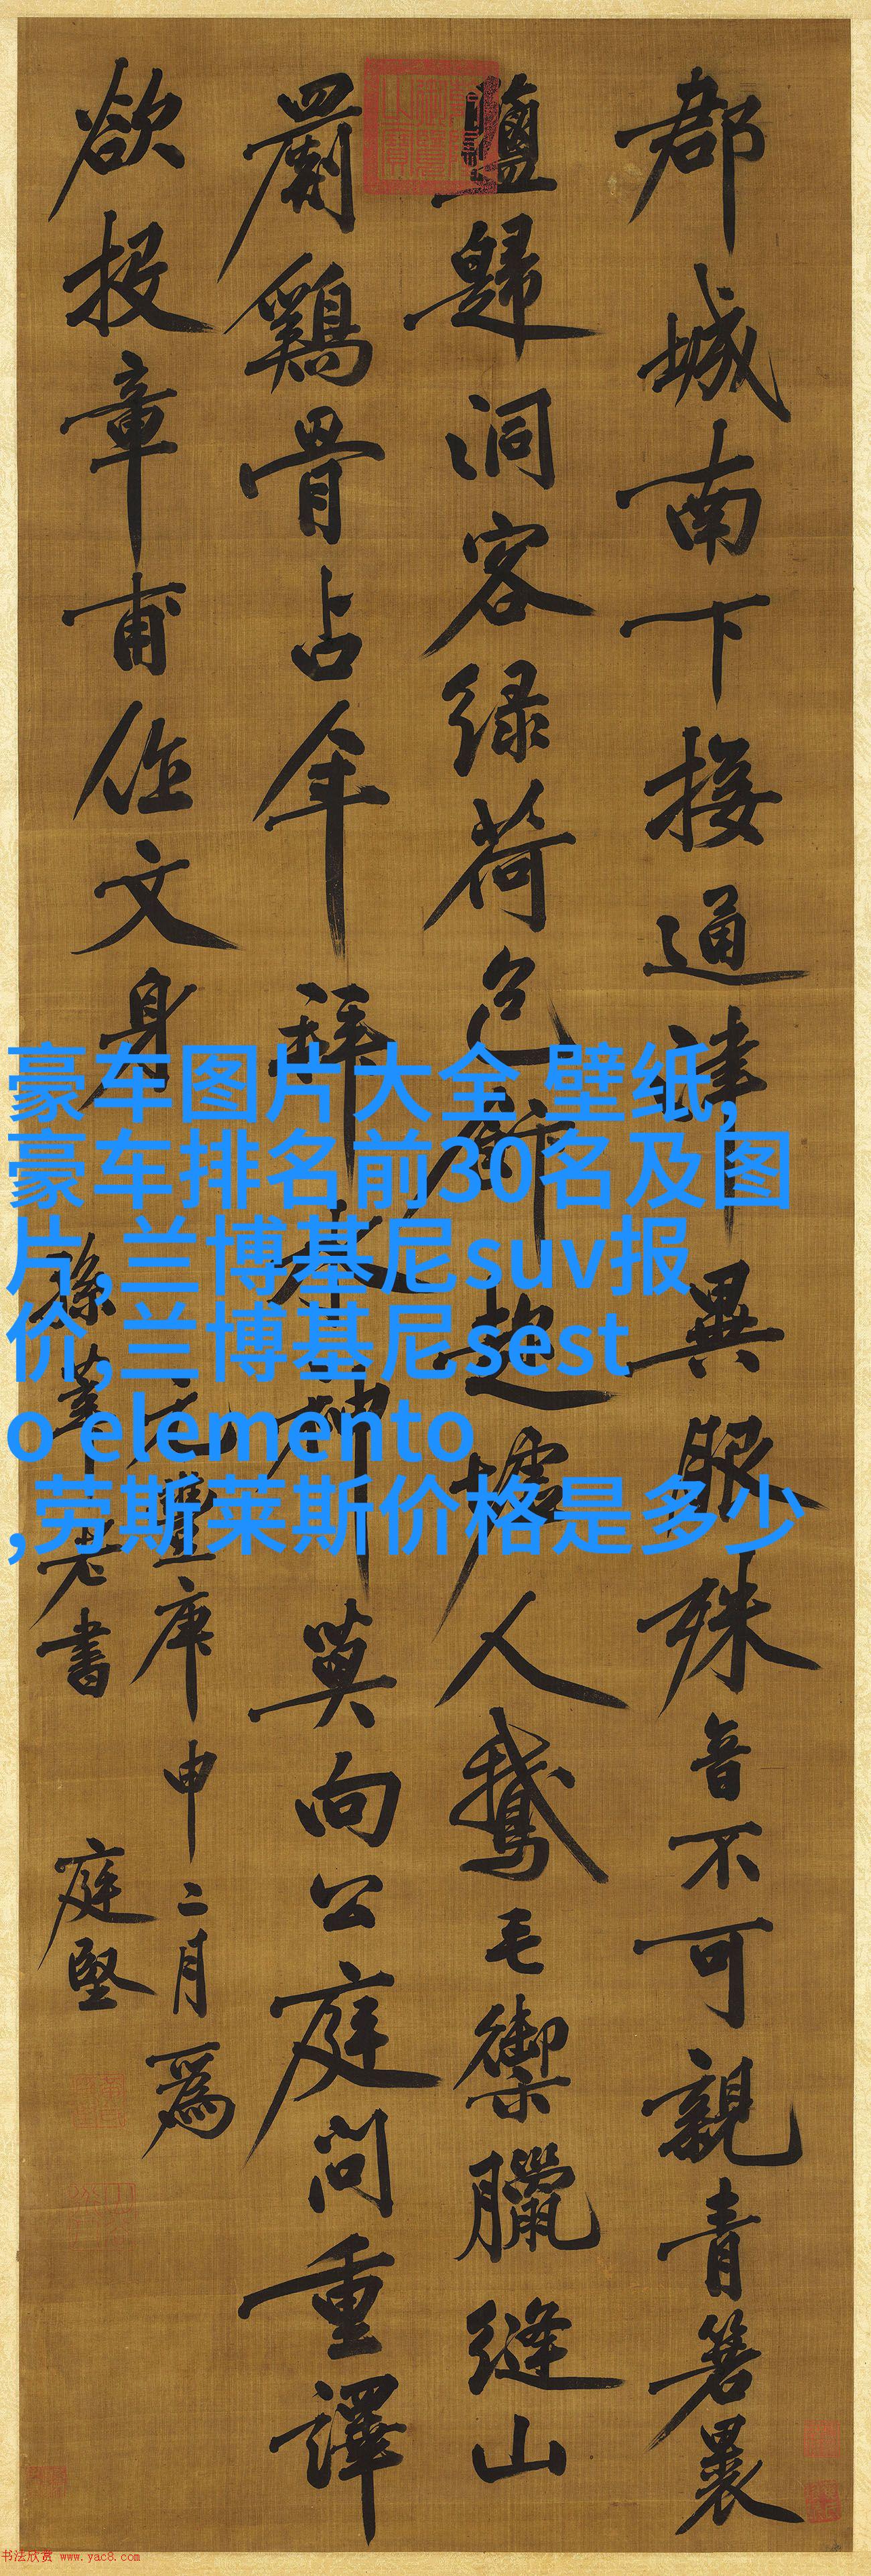 郡城南下接通津異服殊音不可親青箬裹
鹽歸洞客緑荷包飯趁墟人鵝毛禦臘縫山
罽鷄骨占年拜水神莫向公庭問重譯
欲投章甫作文身
元豐庚申二月為
孫莘老書 庭堅
豪车图片大全 壁纸,
豪车排名前30名及图
片,兰博基尼suv报
价,兰博基尼sest
o elemento
,劳斯莱斯价格是多少
书法欣赏 www.yac8.com